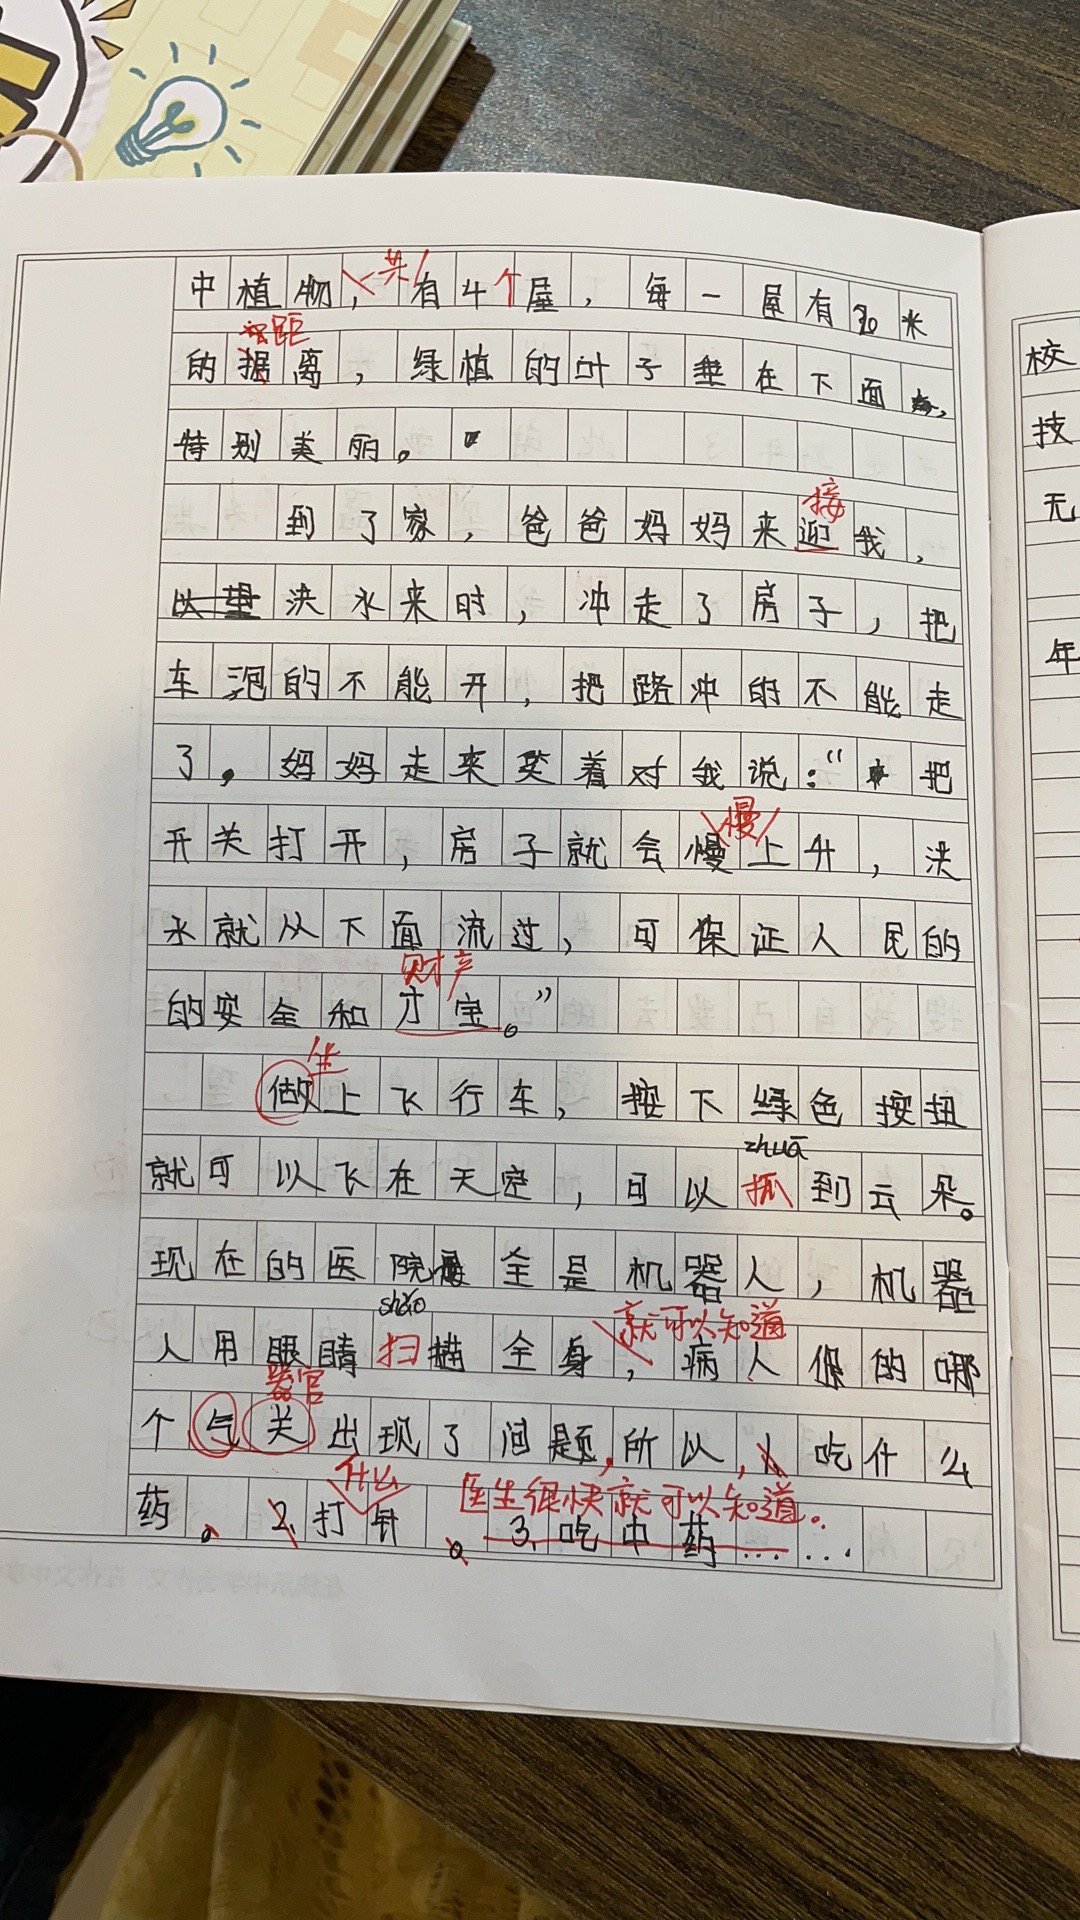 一共 个
中植物，有4屋，每一屋有20米
距
的据离，绿植的叶子垂在下面，
特别美丽。
接
到了家，爸爸妈妈来迎我，
以望洪水来时，冲走了房子，把
车泡的不能开，把路冲的不能走
了。妈妈走来笑着对我说：“把
慢
开关打开，房子就会慢上升，洪
水就从下面流过，可保证人民的
财产
的安全和才宝。”
坐
做上飞行车，按下绿色按扭
zhuā
就可以飞在天空，可以抓到云朵。
现在的医院全是机器人，机器
shǎo
就可以知道
人用眼睛扫描全身，病人你的哪
器官
个气关出现了问题，所以，1、吃什么
什么
医生很快就可以知道。
药。2、打针。3、吃中药……
校
技
无
年